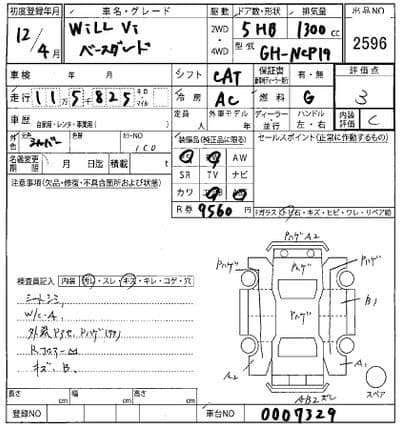 初度登録年月
12/4月
車名・グレード
WiLL Vi
ベースグレード
駆動
2WD
・
4WD
ドア数・形状
5 HB
排気量
1300cc
型式
GH-NCP19
出品NO
2596
車検 年 月
シフト
CAT
保証書
有・無
評価点
3
走行 115825
冷房
AC
燃料
G
車歴
自家用・レンタ・事業用( )
定員
人
外車モデル
年
ディーラー
・
並行
ハンドル
左・右
内装評価
C
外色
元色
シルバー
色替
カラーNO
1C0
装備品(純正品に限る)
AW
SR TV ナビ
カワ
セールスポイント(正常に作動するもの)
名義変更期限
月 日迄
積載
t
R券 9560円
注意事項(欠品・修復・不具合箇所および状態)
ガラス(トビ石・キズ・ヒビ・ワレ・リペア跡
検査員記入
内装
汚レ・スレ・キズ・キレ・コゲ・穴
シートシミ
W/C-A
R コーナー
キズ、B.
PハゲA2
Pハゲ
Pハゲ
Pハゲ
B1
A2
A1
スペア
長さ cm
幅 cm
高さ cm
登録NO
車台NO
0007329